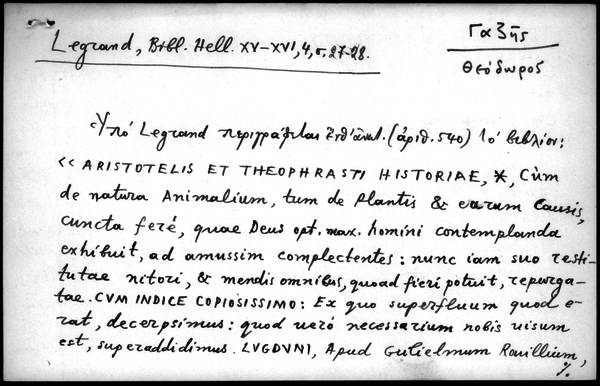 Legrand, Bibl. Hell. XV-XVI, 4, σ. 27-28.
Γαζῆς
Θεόδωρος
Ὑπό Legrand περιγράφεται ἐνθ' ἀνωτ. (ἀριθ. 540) τό βιβλίον:
« ARISTOTELIS ET THEOPHRASTI HISTORIAE, *, Cùm
de natura Animalium, tum de Plantis & earum Causis,
cuncta feré, quae Deus opt. max. homini contemplanda
exhibuit, ad amussim complectentes: nunc iam suo resti-
tutae nitori, & mendis omnibus, quoad fieri potuit, repurga-
tae. CVM INDICE COPIOSISSIMO: Ex quo superfluum quod e-
rat, decerpsimus: quod ueró necessarium nobis uisum
est, superaddidimus. LVGDVNI, Apud Gulielmum Rouillium,
%